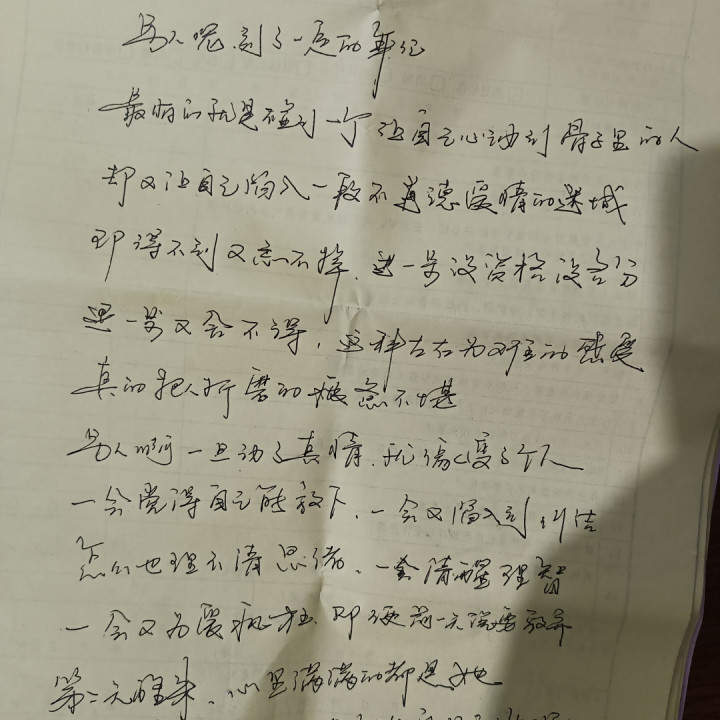 男人呢.到了一定的年纪
最怕的就是碰到一个让自己心动到骨子里的人
却又让自己陷入一段不道德爱情的迷城
即得不到又忘不掉.进一步没资格没名分
退一步又舍不得,这种左右为难的感受
真的把人折磨的疲惫不堪
男人啊一旦动了真情.就像变了个人
一会觉得自己能放下.一会又陷入到纠结
怎么也理不清思绪.一会清醒理智
一会又为爱疯狂.即便前一天说要放弃
第二天醒来.心里满满的都是她